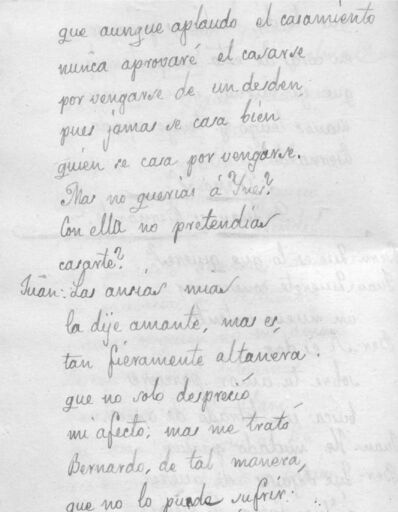 que aunque aplaudo el casamiento
nunca aprovaré el casarse
por vengarse de un desden
pues jamas se casa bién
quién se casa por vengarse.
Mas no querias á Ynes?
Con ella no pretendias
casarte?
Juan: Las ansiás mias
la dije amante, mas es
tan fieramente altanéra.
que no solo despreció
mi afecto; mas me trató
Bernardo, de tal manera,
que no lo puede sufrir: